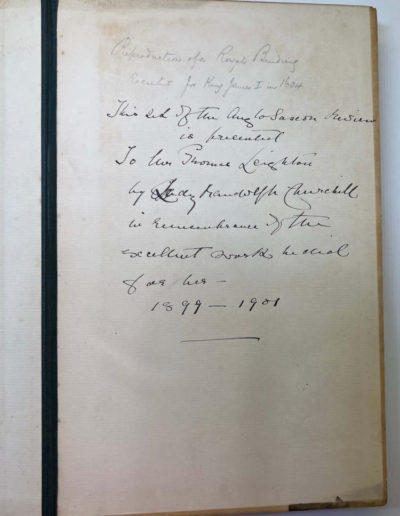 Reproduction of a Royal Binding
Executed for King James I in 1604
This set of the Anglo Saxon Review
is presented
To Mr Thomas Leighton
by Lady Randolph Churchill
in remembrance of the
excellent work he did
for her –
1899 – 1901